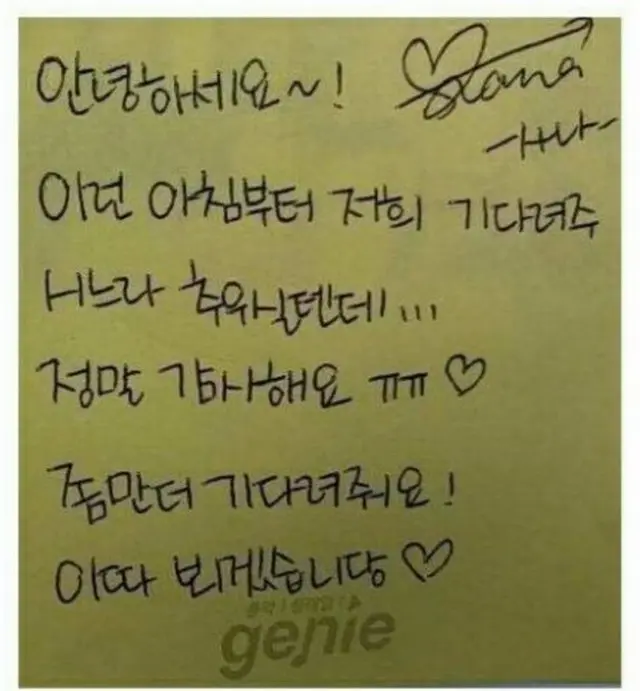 안녕하세요~! ♡Sana
-사나-
이런 아침부터 저희 기다려주
시느라 추위실텐데...
정말 감사해요 ㅠㅠ ♡
좀만더 기다려줘요!
이따 뵈겠습니당 ♡
genie